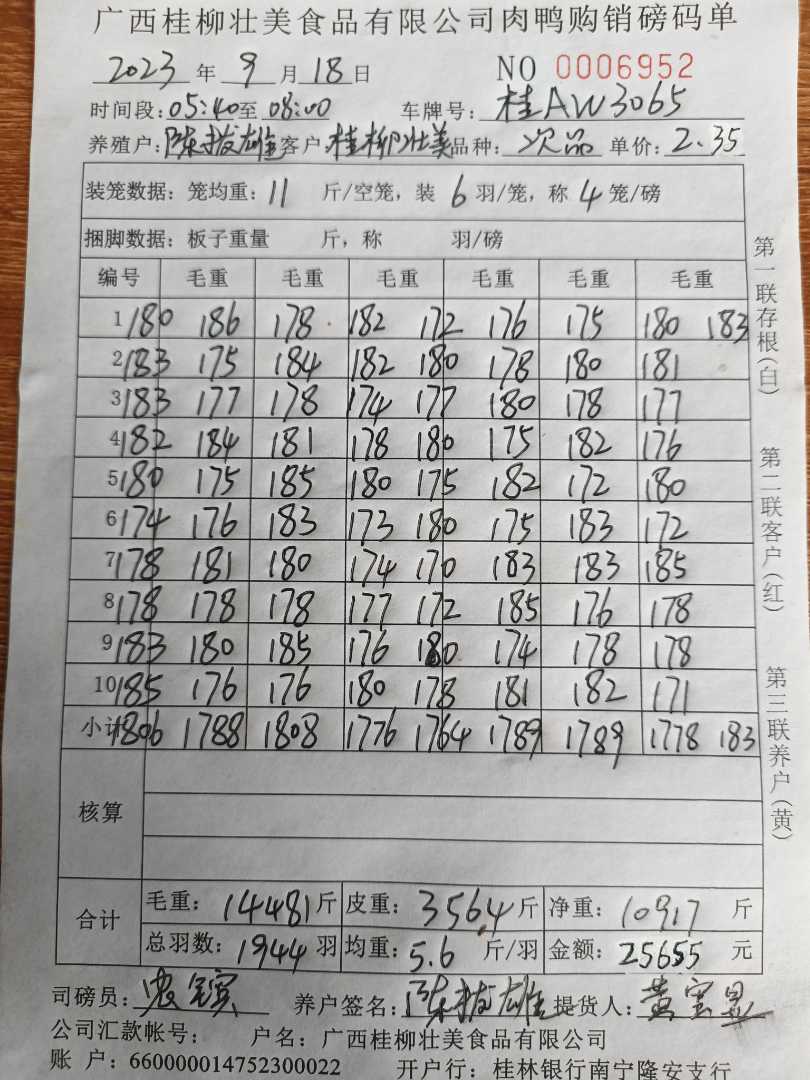 广西桂柳壮美食品有限公司肉鸭购销磅码单
2023 年 9 月 18 日 NO 0006952
时间段: 05:40 至 08:00 车牌号: 桂AW3065
养殖户: 陈拔雄 客户: 桂柳壮美 品种: 次品 单价: 2.35
装笼数据: 笼均重: 11 斤/空笼, 装 6 羽/笼, 称 4 笼/磅
捆脚数据: 板子重量 斤, 称 羽/磅
编号 毛重 毛重 毛重 毛重 毛重 毛重
1 180 186 178 182 172 176 175 180 183
2 183 175 184 182 180 178 180 181
3 183 177 178 174 177 180 178 177
4 182 184 181 178 180 175 182 176
5 180 175 185 180 175 182 172 180
6 174 176 183 173 180 175 183 172
7 178 181 180 174 170 183 183 185
8 178 178 178 177 172 185 176 178
9 183 180 185 176 180 174 178 178
10 185 176 176 180 178 181 182 171
小计 1806 1788 1808 1776 1764 1789 1789 1778 183
核算
合计 毛重: 14481 斤 皮重: 3564 斤 净重: 10917 斤
总羽数: 1944 羽 均重: 5.6 斤/羽 金额: 25655 元
司磅员: 养户签名: 陈拔雄 提货人: 黄
公司汇款帐号: 户名: 广西桂柳壮美食品有限公司
账 户: 660000014752300022 开户行: 桂林银行南宁隆安支行
第一联存根(白)
第二联客户(红)
第三联养户(黄)